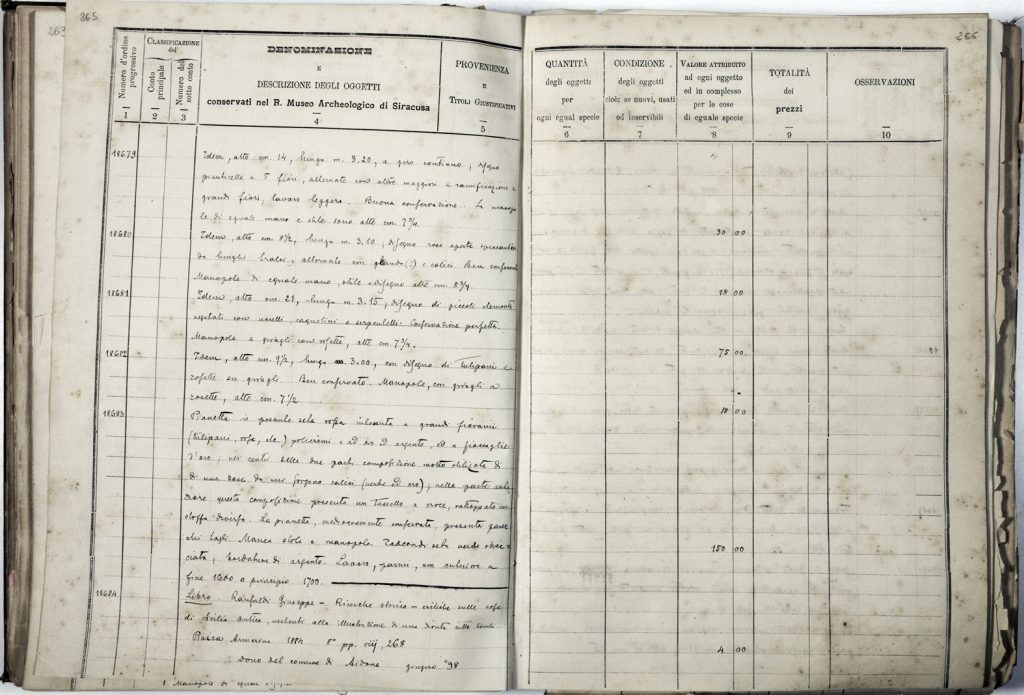 263
265
Numero d'ordine progressivo
1
CLASSIFICAZIONE del
Conto principale
2
Numero del sotto conto
3
DENOMINAZIONE
E
DESCRIZIONE DEGLI OGGETTI
conservati nel R. Museo Archeologico di Siracusa
4
PROVENIENZA
E
TITOLI GIUSTIFICATIVI
5
18679
Idem, alto cm. 14, lungo m. 3.20, a giro continuo; disegno
pianticelle a 5 fiori, alternate con altre maggiori a ramificazione e
grandi fiori; lavoro leggero. Buona conservazione. Le manopo
le di eguale mano e stile sono alte cm. 7¾.
18680
Idem, alto cm. 8½, lungo m. 3,10; disegno rose aperte
da lunghi tralci, alternate con (?) e calici. Ben conservato
Manopole di eguale mano, stile e disegno alte cm. 8¾.
18681
Idem, alto cm. 21, lungo m. 3.15; disegno di piccoli elementi
vegetali con uccelli, cagnolini e serpentelli. Conservazione perfetta.
Manopole a con rosette, alte cm. 7¾.
18682
Idem, alto cm. 9½, lungo m. 3.00, con disegno di Tulipani e
rosette su. Ben conservato. Manopole, con a
rosette, alte cm. 7½
18683
Pianetta in pesante seta rossa intessuta a grandi fiorami
(tulipani, rose, etc.) policromi e ad oro ed argento, ed a
d'oro; nei centri delle due parti composizione molto stilizzata di
di una base da cui sorgono calici (verde ed oro); nella parte ante
riore questa composizione presenta un tassello a croce, rattoppato con
stoffa diversa. La pianetta, mediocremente conservata, presenta parec
chi tagli. Manca stola e manopola. Fodera di seta verde
ciata, bordature di argento. Lavoro, parmi, non anteriore a
fine 1600 o principio 1700.
18684
Libro. Ranfaldi Giuseppe – Ricerche storico – critiche sulle cose
di Sicilia antica, vertenti alla illustrazione di una città
Piazza Armerina 1884 8° pp. viij, 268
Dono del comune di Aidone giugno '98
Manopole di
266
QUANTITÀ
degli oggetti
per
ogni egual specie
6
CONDIZIONE
degli oggetti
cioè: se nuovi, usati
od inservibili
7
VALORE ATTRIBUTO
ad ogni oggetto
ed in complesso
per le cose
di eguale specie
8
TOTALITÀ
dei
prezzi
9
OSSERVAZIONI
10
30 00
18 00
75 00
18 00
150 00
4 00